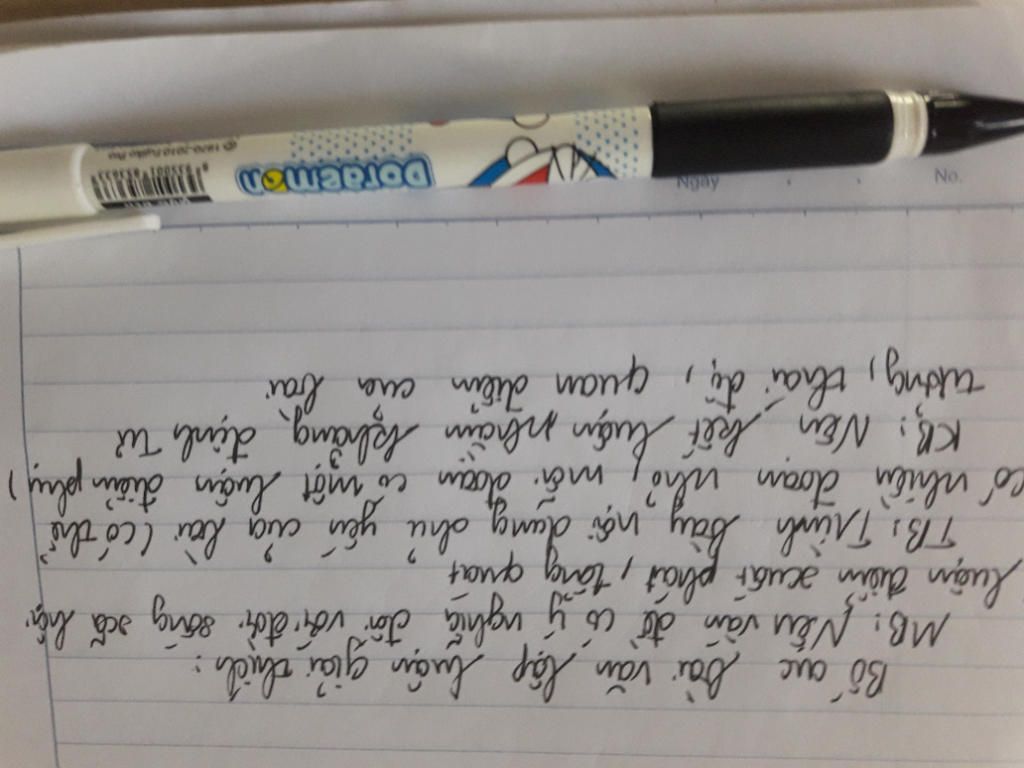 Bố cục bài văn lập luận giải thích:
MB: Nêu vấn đề có ý nghĩa đối với đời sống xã hội.
luận điểm xuất phát, tổng quát
TB: Trình bày nội dung chủ yếu của bài (có thể
có nhiều đoạn nhỏ, mỗi đoạn có một luận điểm phụ)
KB: Nêu kết luận nhằm khẳng định tư
tưởng, thái độ, quan điểm của bài
Ngày No.
DORAEMON
© 1970-2010 Fujiko Pro